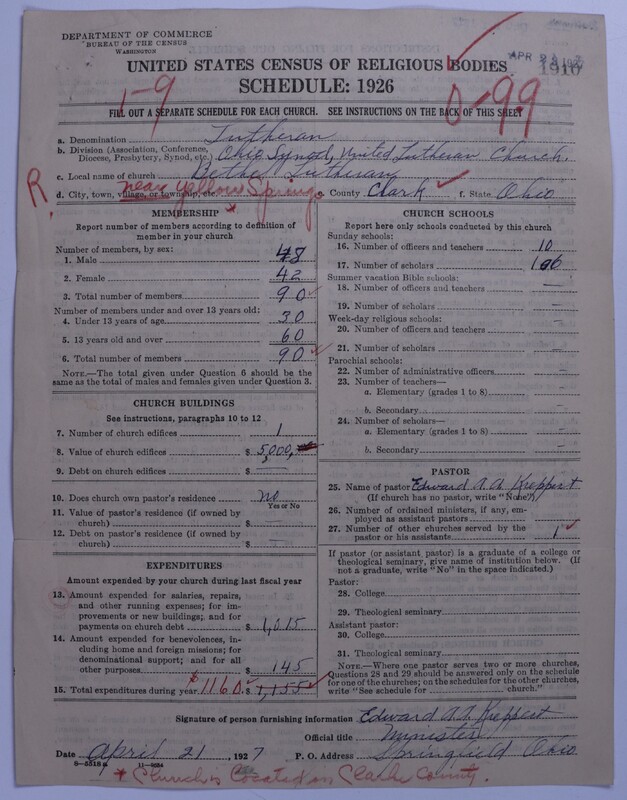 DEPARTMENT OF COMMERCE
BUREAU OF THE CENSUS
WASHINGTON
APR 1910
UNITED STATES CENSUS OF RELIGIOUS BODIES
SCHEDULE: 1926
1-9
0-99
FILL OUT A SEPARATE SCHEDULE FOR EACH CHURCH. SEE INSTRUCTIONS ON THE BACK OF THIS SHEET
a. Denomination Lutheran
b. Division (Association, Conference, Diocese, Presbytery, Synod, etc.) Ohio Synod, United Lutheran Church.
c. Local name of church Bethel Lutheran
R. d. City, town, village, or township, etc. near Yellow Springs County Clark f. State, Ohio
MEMBERSHIP
Report number of members according to definition of
member in your church
Number of members, by sex:
1. Male 48
2. Female 42
3. Total number of members 90
Number of members under and over 13 years old:
4. Under 13 years of age 30
5. 13 years old and over 60
6. Total number of members 90
NOTE.—The total given under Question 6 should be
same as the total of males and females given under Question 3.
CHURCH BUILDINGS
See instructions, paragraphs 10 to 12
7. Number of church edifices 1
8. Value of church edifices $ 5,000,
9. Debt on church edifices $ —
10. Does church own pastor's residence no
Yes or No
11. Value of pastor's residence (if owned by
church) $ —
12. Debt on pastor's residence (if owned by
church) $ —
EXPENDITURES
Amount expended by your church during last fiscal year
13. Amount expended for salaries, repairs,
and other running expenses; for im-
provements or new buildings; and for
payments on church debt $ 1,015
14. Amount expended for benevolences, in-
cluding home and foreign missions; for
denominational support; and for all
other purposes $ 145
15. Total expenditures during year $1160. $ 1,155
CHURCH SCHOOLS
Report here only schools conducted by this church
Sunday schools:
16. Number of officers and teachers 10
17. Number of scholars 106
Summer vacation Bible schools:
18. Number of officers and teachers —
19. Number of scholars —
Week-day religious schools:
20. Number of officers and teachers —
21. Number of scholars —
Parochial schools:
22. Number of administrative officers —
23. Number of teachers—
a. Elementary (grades 1 to 8) —
b. Secondary —
24. Number of scholars—
a. Elementary (grades 1 to 8) —
b. Secondary —
PASTOR
25. Name of pastor Edward A. A. Kreppert
(If church has no pastor, write "None")
26. Number of ordained ministers, if any, em-
ployed as assistant pastors
27. Number of other churches served by the
pastor or his assistants 1
If pastor (or assistant pastor) is a graduate of a college or
theological seminary, give name of institution below. (If
not a graduate, write "No" in the space indicated.)
Pastor:
28. College
29. Theological seminary
Assistant pastor:
30. College
31. Theological seminary
NOTE.—Where one pastor serves two or more churches,
Questions 28 and 29 should be answered only on the schedule
for one of the churches; on the schedules for the other churches,
write "See schedule for church."
Signature of person furnishing information Edward A. A. Kreppert
Official title minister
Date April 21, 1927 P. O. Address Springfield Ohio
8-5518a 11-9324
* Church is located in Clarke County.